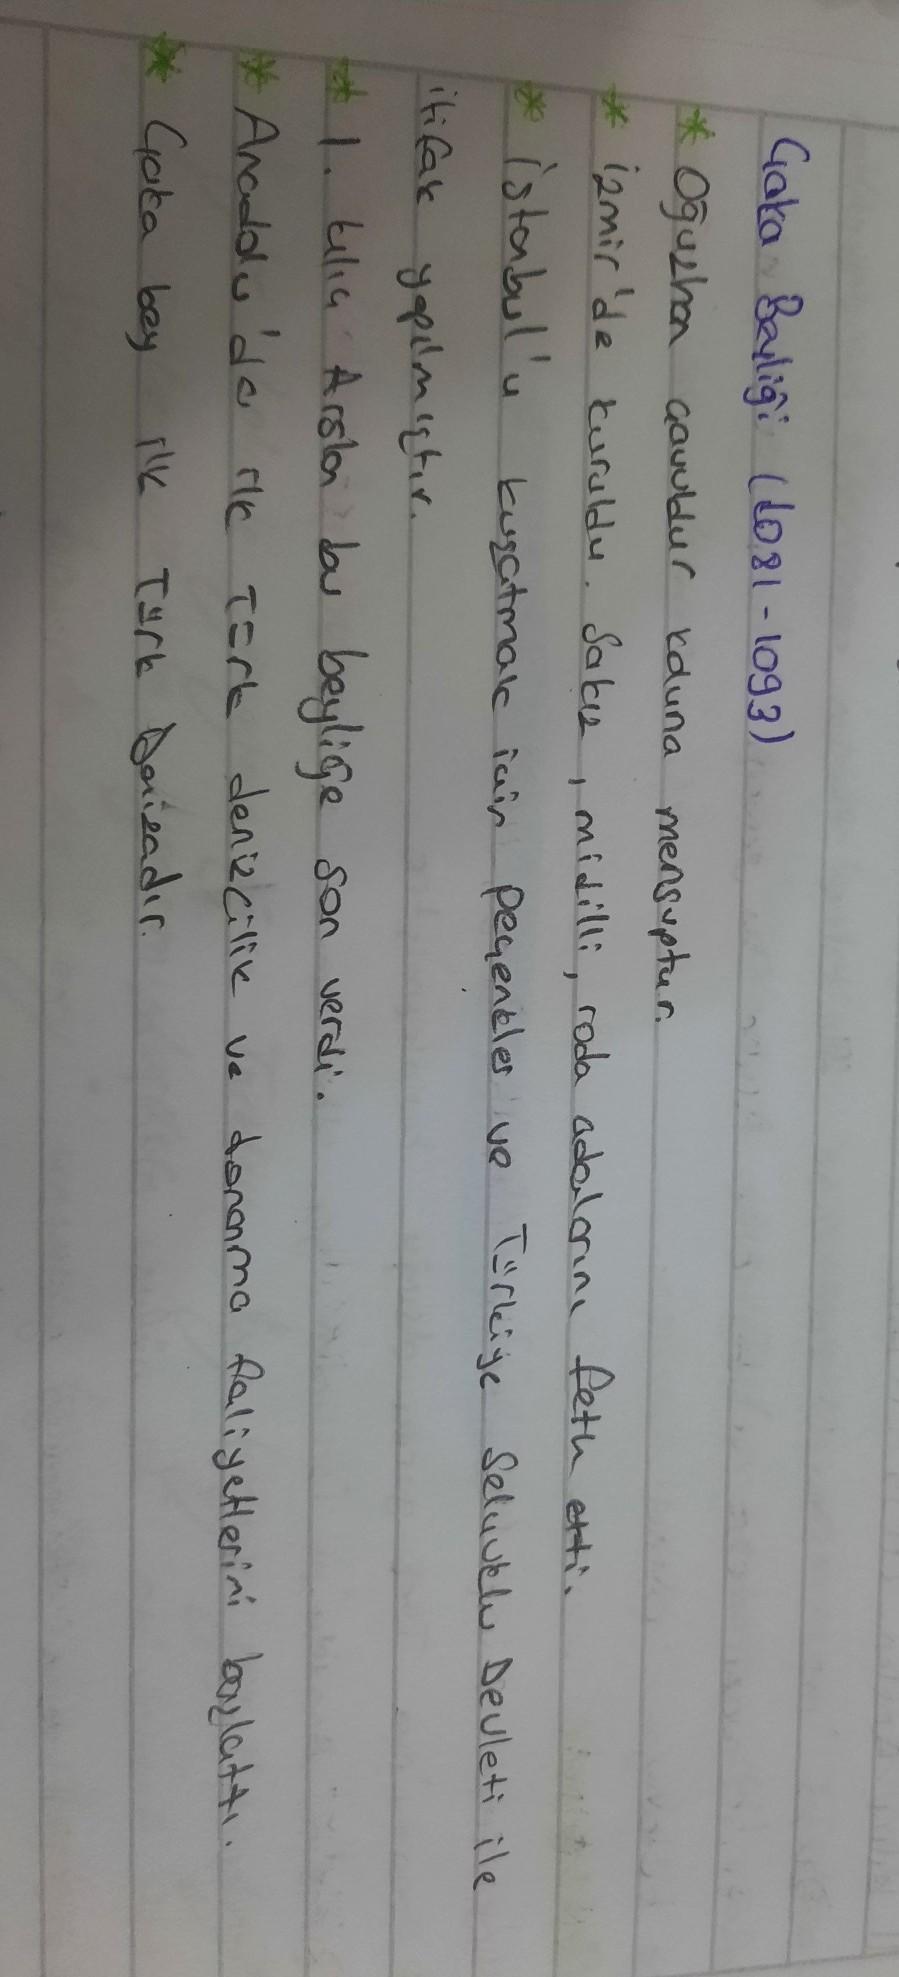 Çaka Beyliği (1081-1093)
* Oğuzhan çavuldur koluna mensuptur.
* izmir'de kuruldu. Sakız, midilli, roda adalarını feth etti.
* İstanbul'u kuşatmak için peçenekler ve Türkiye Selçuklu Devleti ile
itifak yapılmıştır.
* 1. kılıç Arslan bu beyliğe son verdi.
* Anadolu'da ilk Türk denizcilik ve donanma faliyetlerini başlattı.
* Çaka bey ilk Türk Denizcidir.